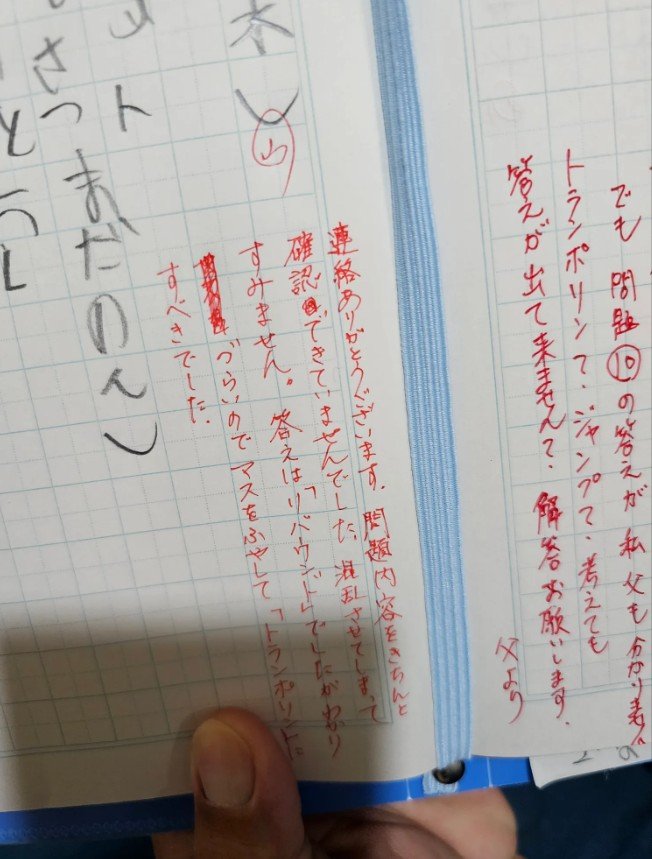 でも 問題⑩の答えが 私 父も 分かりませ
トランポリンて、ジャンプて、考えても
答えが出て来ません?、解答お願いします。
父より
連絡ありがとうございます。問題内容をきちんと
確認できていませんでした。混乱させてしまって
すみません。答えは「リバウンド」でしたがわかり
づらいのでマスをふやして「トランポリン」に
すべきでした。
木し
山
ト
まだのんし
さっ